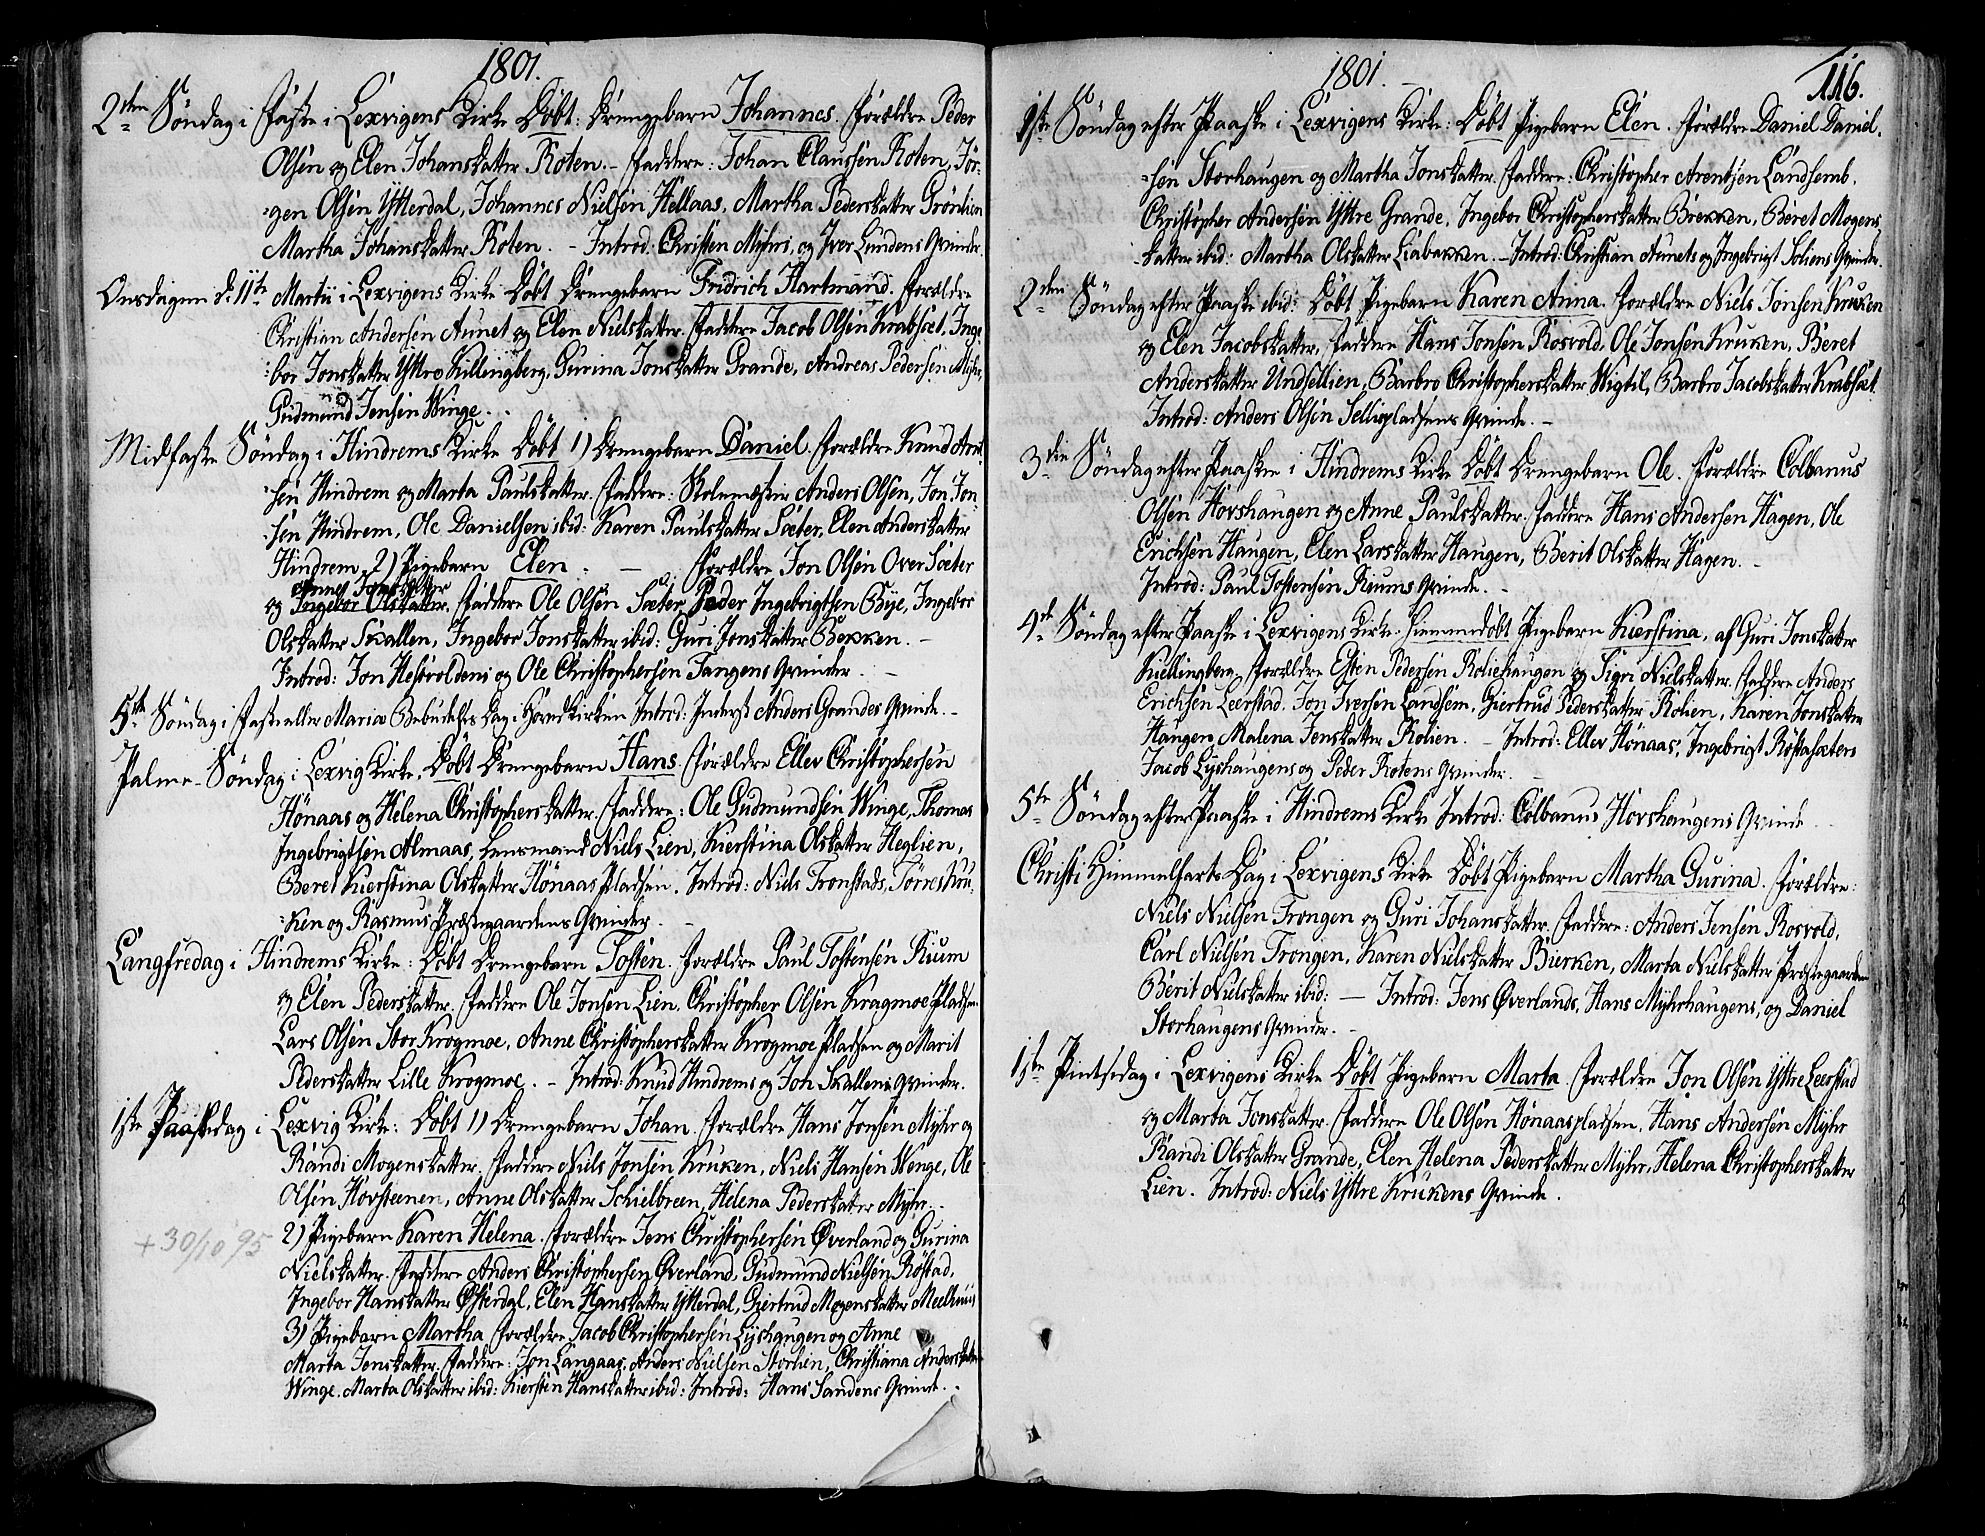 1801.
2den Søndag i Faste i Lexvigens Kirke Döbt: Drengebarn Johannes. Forældre Peder
Olsen og Elen Johansdatter Roten. - Faddere: Johan Claussen Roten, Jör-
-gen Olsen Ytterdal, Johannes Nielsen Hellaas, Martha Pedersdatter Grönlien
Martha Johansdatter Roten. - Introd: Christen Myhrs, og Iver Lundens Qvinder.
Onsdagen d: 11te Martii i Lexvigens Kirke Döbt Drengebarn Fridrich Hartmand. Forældre
Christian Andersen Aunet og Elen Nielsdatter. Faddere Jacob Olsen Krabsæt, Inge
-bor Jonsdatter Yttre Killingberg, Gurina Jonsdatter Grande, Andreas Pedersen Myhr,
Gudmund Jensen Winge.
Midfaste Söndag i Hindrems Kirke Döbt 1) Drengebarn Daniel. Forældre Knud Arnt
-sen Hindrem og Marta Paulsdatter. Faddere: Skolemester Anders Olsen, Jon Jon-
-sen Hindrem, Ole Danielsen ibid: Karen Paulsdatter Sæter, Elen Andersdatter
Hindrem. 2) Pigebarn Elen. - Forældre Jon Olsen Over Sæter
Anne Jonsdatter
og Ingebor Olsdatter. Faddere Ole Olsen Sæter, Peder Ingebrigtsen Bye, Ingebor
Olsdatter Skallen, Ingebor Jonsdatter ibid: Guri Jonsdatter Bekken. -
Introd: Jon Hestvoldens og Ole Christophersen Tangens Qvinder. -
5te Søndag i Faste eller Mariæ Bebudelses Dag i Hoved Kirken Introd: Inderst Anders Grandes Qvinde. -
Palme-Søndag i Lexvig Kirke. Döbt Drengebarn Hans. Forældre Ellev Christophersen
Hönaas og Helena Christophersdatter. Faddere: Ole Gudmundsen Winge, Thomas
Ingebrigtsen Almaas, Lensmand Niels Lien, Kierstina Olsdatter Heglien,
Beret Kierstina Olsdatter Hönaas Pladsen. Introd: Niels Tronstads, Törres Kru
-ken og Rasmus Præstegaardens Qvinder. -
Langfredag i Hindrems Kirke: Döbt Drengebarn Tosten. Forældre Paul Tostensen Rium
og Elen Pedersdatter. Faddere Ole Jonsen Lien, Christopher Olsen Kragmoe Pladsen
Lars Olsen Stor Krogmoe, Anne Christophersdatter Krogmoe Pladsen og Marit
Pedersdatter Lille Krogmoe. - Introd: Knud Hindrems og Jon Skallens Qvinder.
1ste Paaskedag i Lexvig Kirke: Döbt 1) Drengebarn Johan. Forældre Hans Jonsen Myhr og
Randi Mogensdatter. Faddere Niels Jonsen Kruken, Niels Hansen Wenge, Ole
Olsen Hovsteenen, Anne Olsdatter Schielbreen, Helena Pedersdatter Myhr. -
+30/10 95
2) Pigebarn Karen Helena. Forældre Jens Christophersen Øverland og Gurina
Nielsdatter. Faddere Anders Christophersen Øverland, Gudmund Nielsen Röstad,
Ingebor Hansdatter Østerdal, Elen Hansdatter Ytterdal, Giertrud Mogensdatter Meelhuus
3) Pigebarn Martha Forældre Jacob Christophersen Lyshaugen og Anne
Marta Jensdatter. Faddere: Jon Langaas, Anders Nielsen Storlien, Christiana Andersdatter
Winge. Marta Olsdatter ibid: Kiersten Hansdatter ibid: Introd: Hans Sandens Qvinde. -
1801.
116.
1ste Søndag efter Paaske i Lexvigens Kirke: Döbt Pigebarn Elen. Forældre Daniel Daniel-
-sen Storhaugen og Martha Jonsdatter. Faddere: Christopher Arentsen Landsemb,
Christopher Andersen Yttre Grande, Ingebor Christophersdatter Brekken, Beret Mogens
-datter ibid: Martha Olsdatter Liabakken. - Introd: Christian Aunets og Ingebrigt Soliens Qvinder.
2den Søndag efter Paaske ibid: Döbt Pigebarn Karen Anna. Forældre Niels Jonsen Kruken
og Elen Jacobsdatter. Faddere Hans Jonsen Rosvold, Ole Jonsen Kruken, Beret
Andersdatter Undsellien, Barbro Christophersdatter Wigtil, Barbro Jacobsdatter Krabsæt.
Introd: Anders Olsen Selliepladsens Qvinde. -
3die Søndag efter Paaske i Hindrems Kirke Döbt Drengebarn Ole. Forældre Colbanus
Olsen Hovshaugen og Anne Paulsdatter. Faddere Hans Andersen Hagen, Ole
Erichsen Haugen, Elen Larsdatter Haugen, Berit Olsdatter Hagen. -
Introd: Paul Tostensen Riums Qvinde. -
4de Søndag efter Paaske i Lexvigens Kirke: Hiemmedöbt Pigebarn Kierstina, af Guri Jonsdatter
Kiellingberg. Forældre Esten Pedersen Roliehaugen og Sigri Nielsdatter. Faddere Anders
Erichsen Leerstad, Jon Iversen Landsem, Giertrud Pedersdatter Rolien, Karen Jonsdatter
Haugen, Malena Jensdatter Rolien. - Introd: Ellev Hönaas, Ingebrigt Röstasæters
Jacob Lyshaugens og Peder Rotens Qvinder. -
5te Søndag efter Paaske i Hindrems Kirke Introd: Colbanus Hovshaugens Qvinde.
Christi Himmelfarts Dag i Lexvigens Kirke Döbt Pigebarn Martha Gurina. Forældre:
Niels Nielsen Trongen og Guri Johansdatter. Faddere: Anders Jensen Rosvold,
Carl Nielsen Trongen, Karen Nielsdatter Bierken, Marta Nielsdatter Præstegaarden
Berit Nielsdatter ibid: - Introd: Jens Øverlands, Hans Myhrhaugens, og Daniel
Storhaugens Qvinder. -
1ste Pintsedag i Lexvigens Kirke Döbt Pigebarn Marta. Forældre Jon Olsen Yttre Leerstad
og Marta Jonsdatter. Faddere Ole Olsen Hönaaspladsen, Hans Andersen Myhr
Randi Olsdatter Grande, Elen Helena Pedersdatter Myhr, Helena Christophersdatter
Lien. Introd: Niels Yttre Krukens Qvinde.